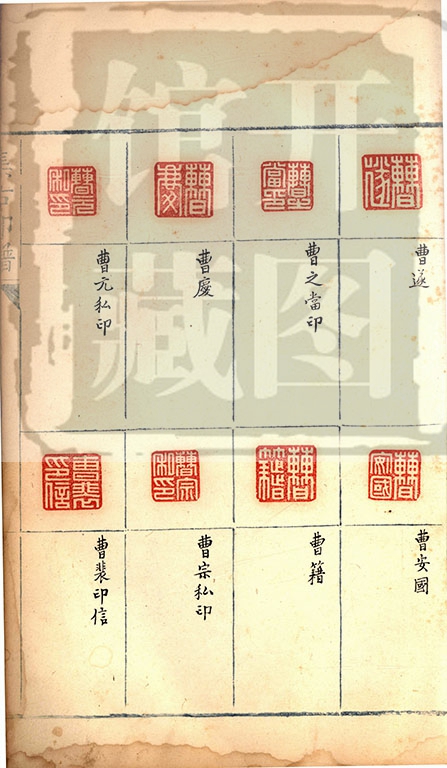 曹遂
曹之當印
曹慶
曹亢私印
曹安國
曹籍
曹宗私印
曹裴印信
开图
馆藏